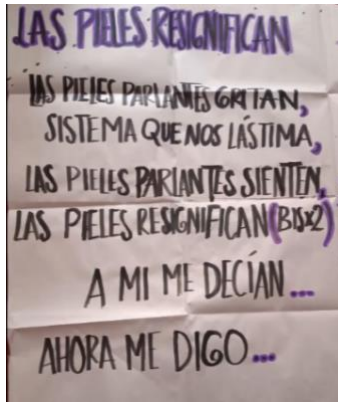 LAS PIELES RESIGNIFICAN
LAS PIELES PARLANTES GRITAN,
SISTEMA QUE NOS LÁSTIMA,
LAS PIELES PARLANTES SIENTEN,
LAS PIELES RESIGNIFICAN (BISx2)
A MI ME DECÍAN...
AHORA ME DIGO...